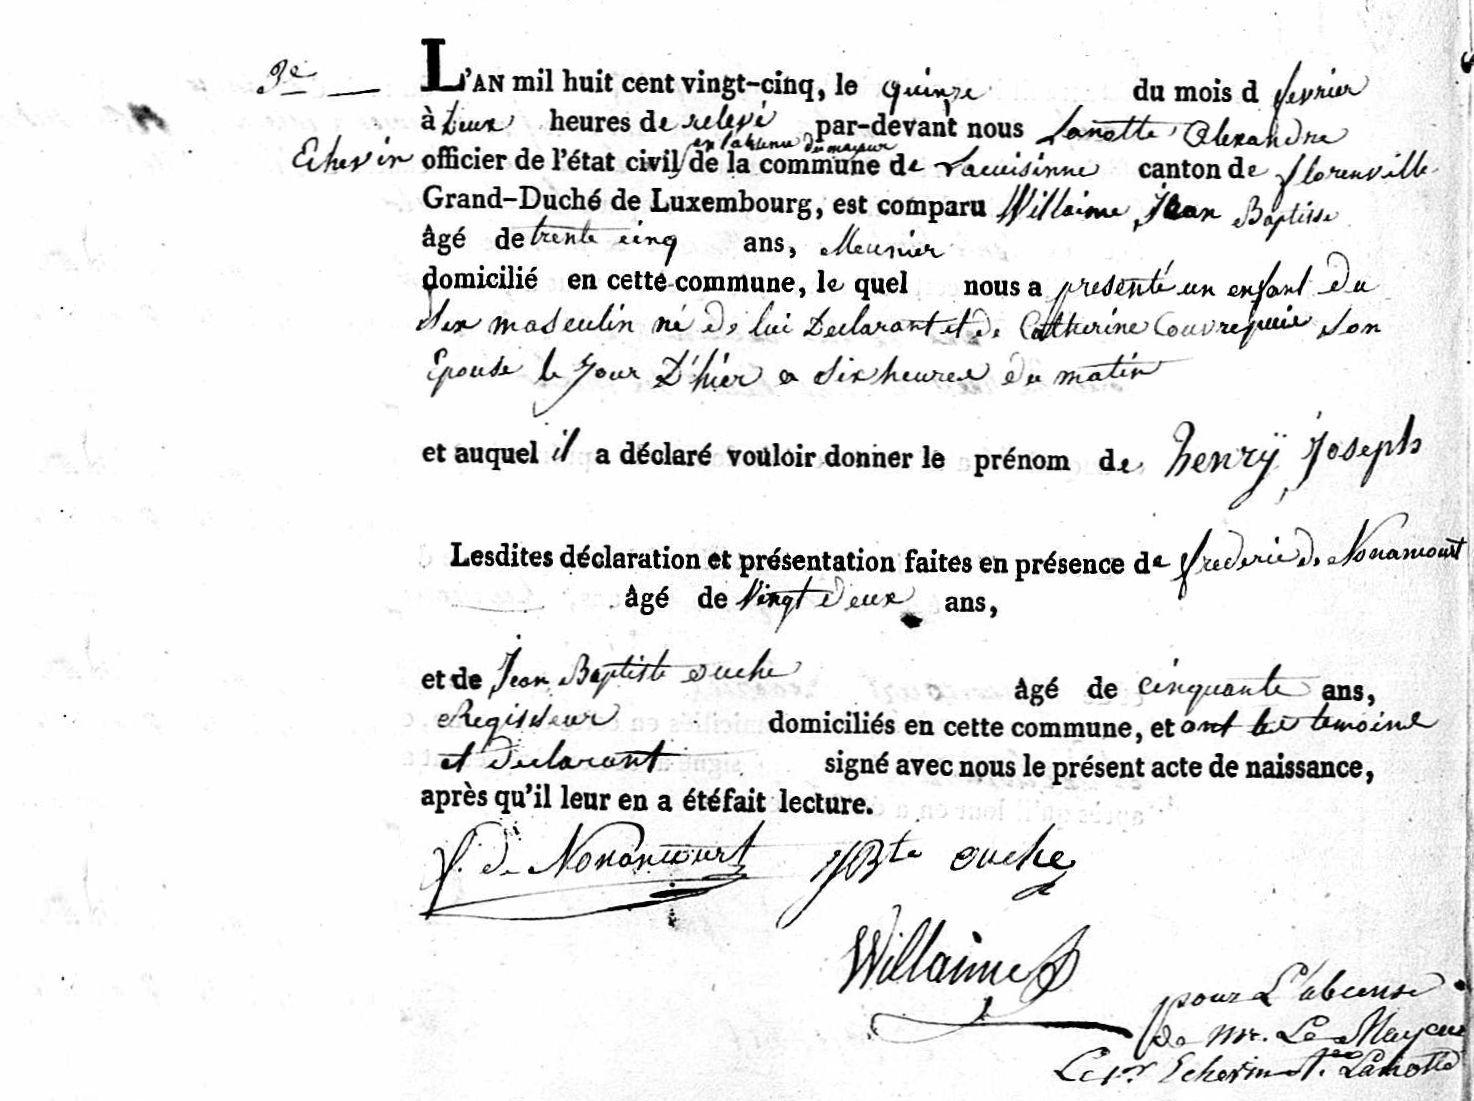 3e
L'AN mil huit cent vingt-cinq, le quinze du mois d fevrier
à deux heures de relevé par-devant nous Lamotte Alexandre
Echevin officier de l'état civil en l'absence du mayeur de la commune de Lacuisinne canton de florenville
Grand-Duché de Luxembourg, est comparu Willaime Jean Baptiste
âgé de trente cinq ans, Meunier
domicilié en cette commune, le quel nous a presenté un enfant du
Sex masculin né de lui Declarant et de Catherine son
Epouse le jour D'hier a six heures du matin
et auquel il a déclaré vouloir donner le prénom de henrÿ Joseph
Lesdites déclaration et présentation faites en présence de frederic de Nonancourt
âgé de Vingt deux ans,
et de Jean Baptiste ouche âgé de cinquante ans,
Regisseur domiciliés en cette commune, et ont les temoins
et declarant signé avec nous le présent acte de naissance,
après qu'il leur en a étéfait lecture.
f. de Nonancourt JBte ouche
Willaime
pour L'absense
de Mr. Le Mayeur
Le 1er Echevin Lamotte